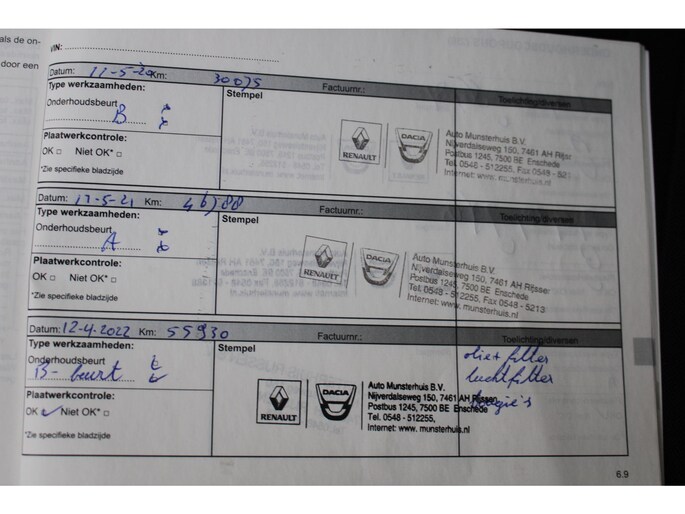 als de on-
door een
VIN:
Datum: 11-5-20 Km: 30075 Factuurnr.: Toelichting/diversen
Type werkzaamheden: Stempel
Onderhoudsbeurt
B
Plaatwerkcontrole:
OK □ Niet OK* □
*Zie specifieke bladzijde
RENAULT DACIA
Auto Munsterhuis B.V.
Nijverdalseweg 150, 7461 AH Rijssen
Postbus 1245, 7500 BE Enschede
Tel. 0548 - 512255, Fax 0548 - 521
Internet: www.munsterhuis.nl
Datum: 17-5-21 Km: 46588 Factuurnr.: Toelichting/diversen
Type werkzaamheden: Stempel
Onderhoudsbeurt
A
Plaatwerkcontrole:
OK □ Niet OK* □
*Zie specifieke bladzijde
RENAULT DACIA
Auto Munsterhuis B.V.
Nijverdalseweg 150, 7461 AH Rijssen
Postbus 1245, 7500 BE Enschede
Tel. 0548 - 512255, Fax 0548 - 5213
Internet: www.munsterhuis.nl
Datum: 12-4-2022 Km: 55930 Factuurnr.: Toelichting/diversen
Type werkzaamheden: Stempel
Onderhoudsbeurt
B-beurt
Plaatwerkcontrole:
OK Niet OK* □
*Zie specifieke bladzijde
RENAULT DACIA
Auto Munsterhuis B.V.
Nijverdalseweg 150, 7461 AH Rijssen
Postbus 1245, 7500 BE Enschede
Tel. 0548 - 512255,
Internet: www. munsterhuis.nl
olier filter
luchtfilter
bougie's
6.9